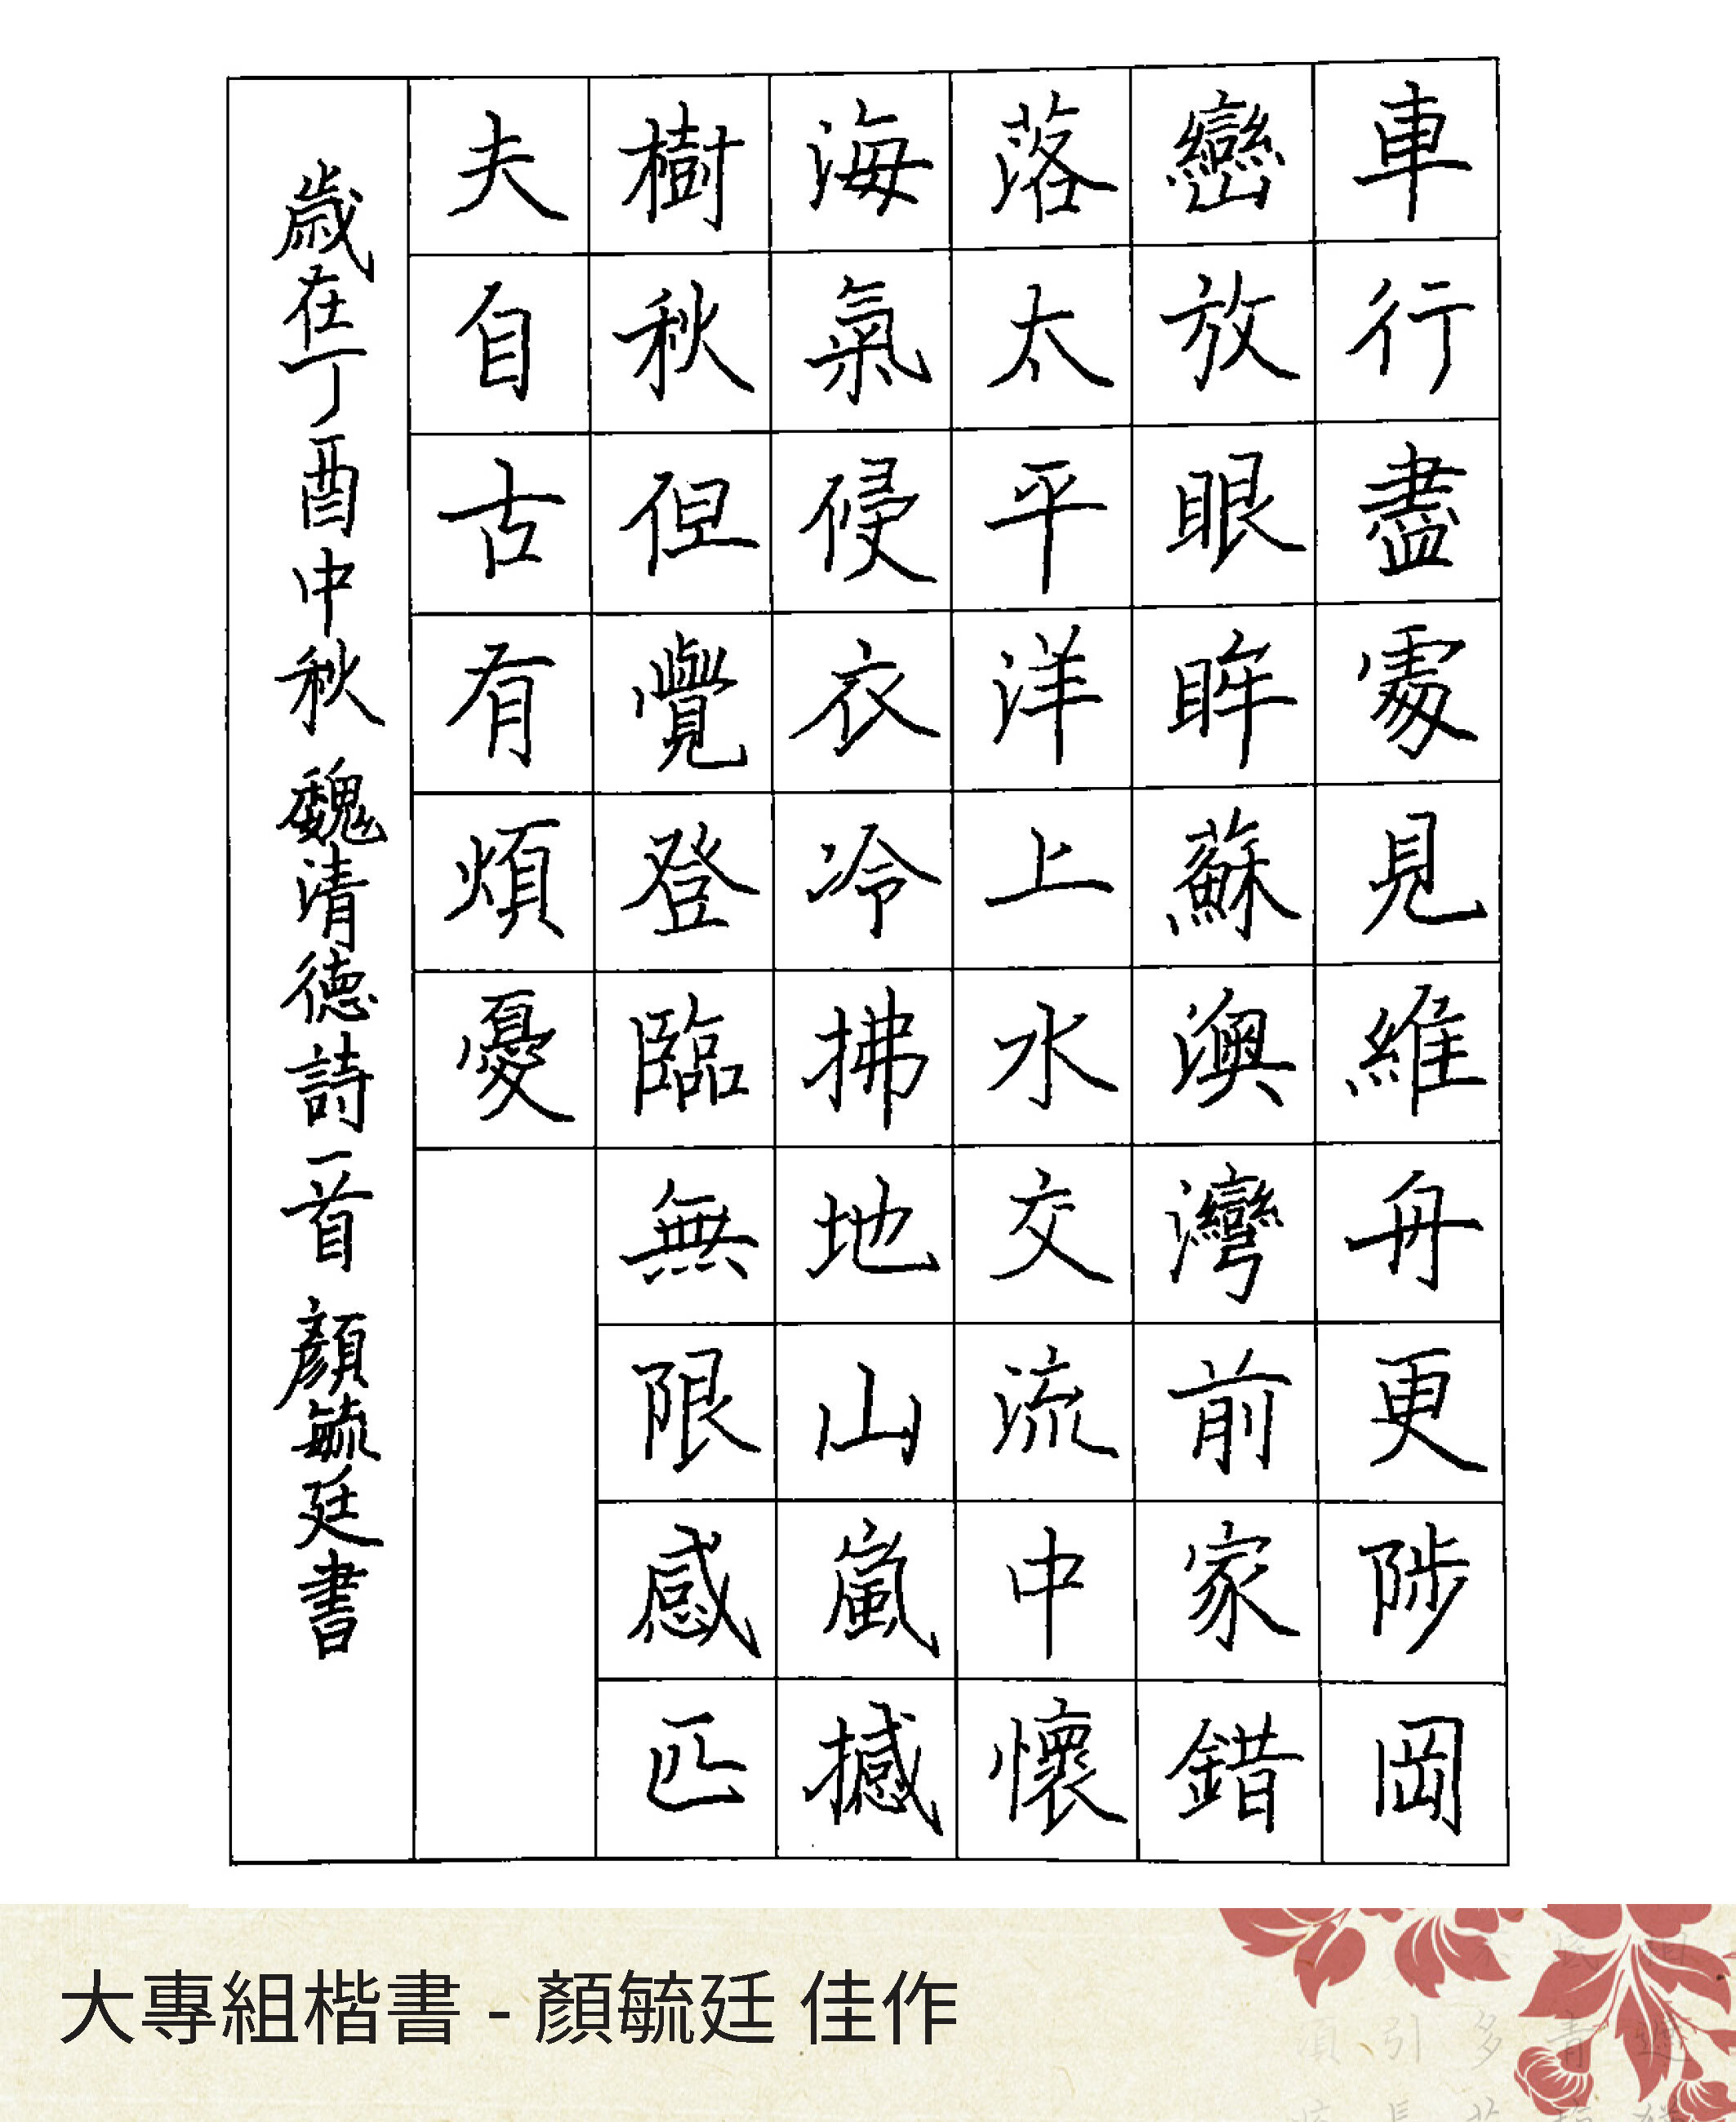 車行盡處見維舟更陟岡
巒放眼眸蘇澳灣前家錯
落太平洋上水交流中懷
海氣侵衣冷拂地山嵐撼
樹秋但覺登臨無限感匹
夫自古有煩憂
歲在丁酉中秋 魏清德詩一首 顏毓廷書
大專組楷書 - 顏毓廷 佳作
引多青